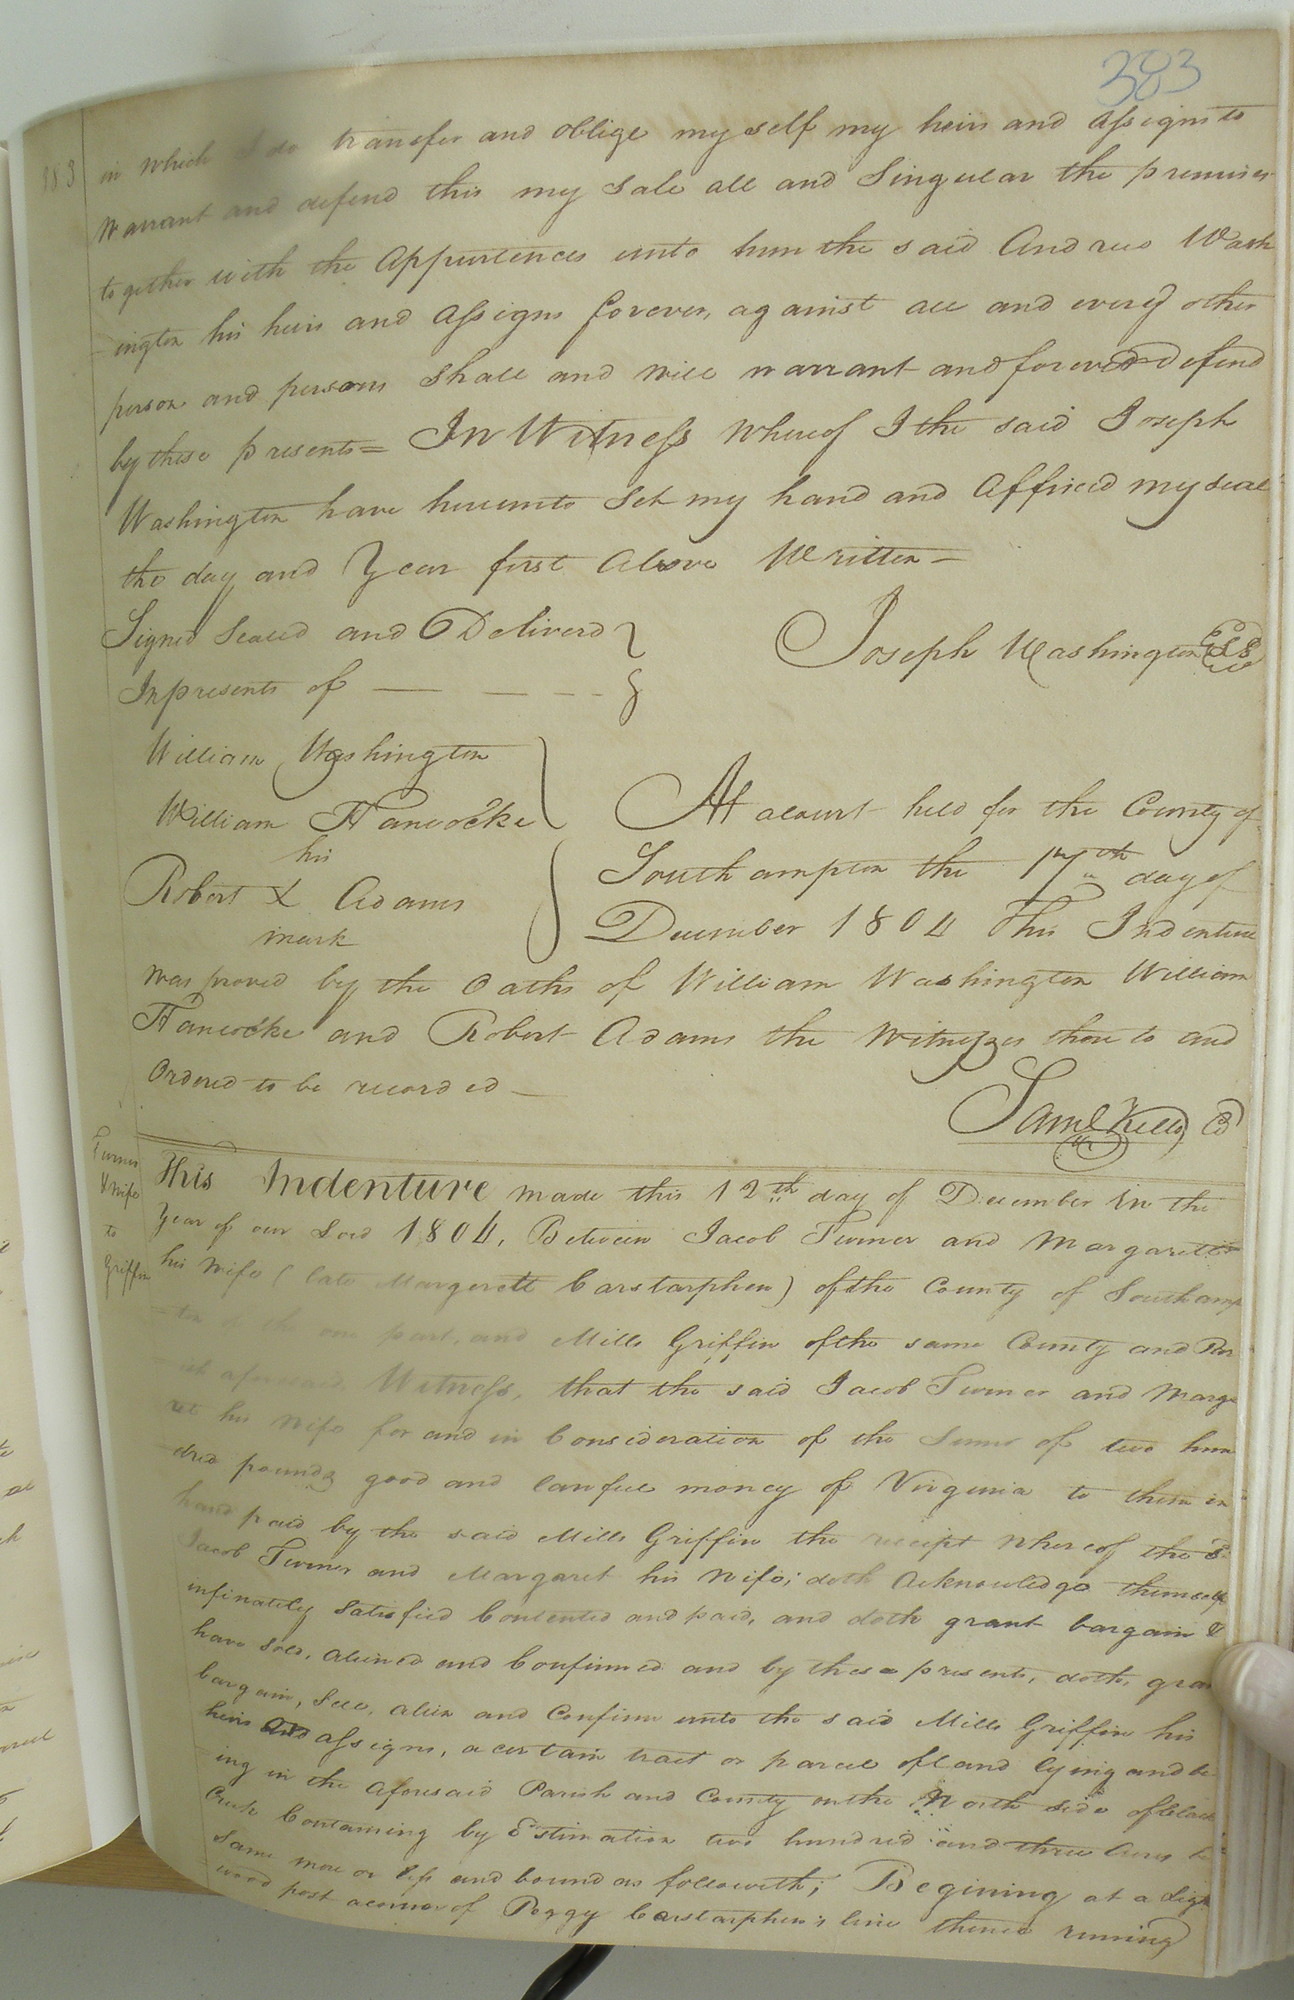 383
383
in which I do transfer and oblige my self my heirs and assigns to
warrant and defend this my sale all and Singular the premises
together with the appurtences unto him the said Andrew Wash
-ington his heirs and assigns forever, against all and every other
person and persons shall and will warrant and forever Defend
by these presents = In Witness whereof I the said Joseph
Washington have hereunto set my hand and affixed my seal
the day and Year first above Written -
Signed Sealed and Deliverd
In presents of
Joseph Washington LS
William Washington
William Hancocke
his
Robert X Adams
mark
At a Court held for the County of
Southampton the 17th day of
December 1804 This Indenture
was proved by the Oaths of William Washington William
Hancocke and Robert Adams the Witnesses thereto and
Ordered to be recorded -
Saml Kello Ck
Turner
& wife
to
Griffin
This Indenture made this 12th day of December in the
Year of our Lord 1804, Between Jacob Turner and Margarett
his Wife (late Margerett Carstarphen) of the County of Southamp
-ton of the one part, and Mills Griffin of the same County and Par
-ish aforesaid, Witness, that the said Jacob Turner and Marga
ret his Wife for and in Consideration of the Sum of two hun
dred pounds good and lawful money of Virginia to them in
hand paid by the said Mills Griffin the receipt whereof the sd
Jacob Turner and Margaret his wife; doth Acknowledge themself
infinately Satisfied Contented and paid, and doth grant bargain &
have sold, aliened and Confirmed and by these presents, doth, grant
bargain, Sell, alien and Confirm unto the said Mills Griffin his
heirs and assigns, a certain tract or parcel of land lying and be
ing in the aforesaid Parish and County on the North side of black
Creek Containing by Estimation two hundred and three Acres be
Same more or less and bound as followeth; Begining at a Ligh
wood post a corner of Peggy Carstarphen's line thence running